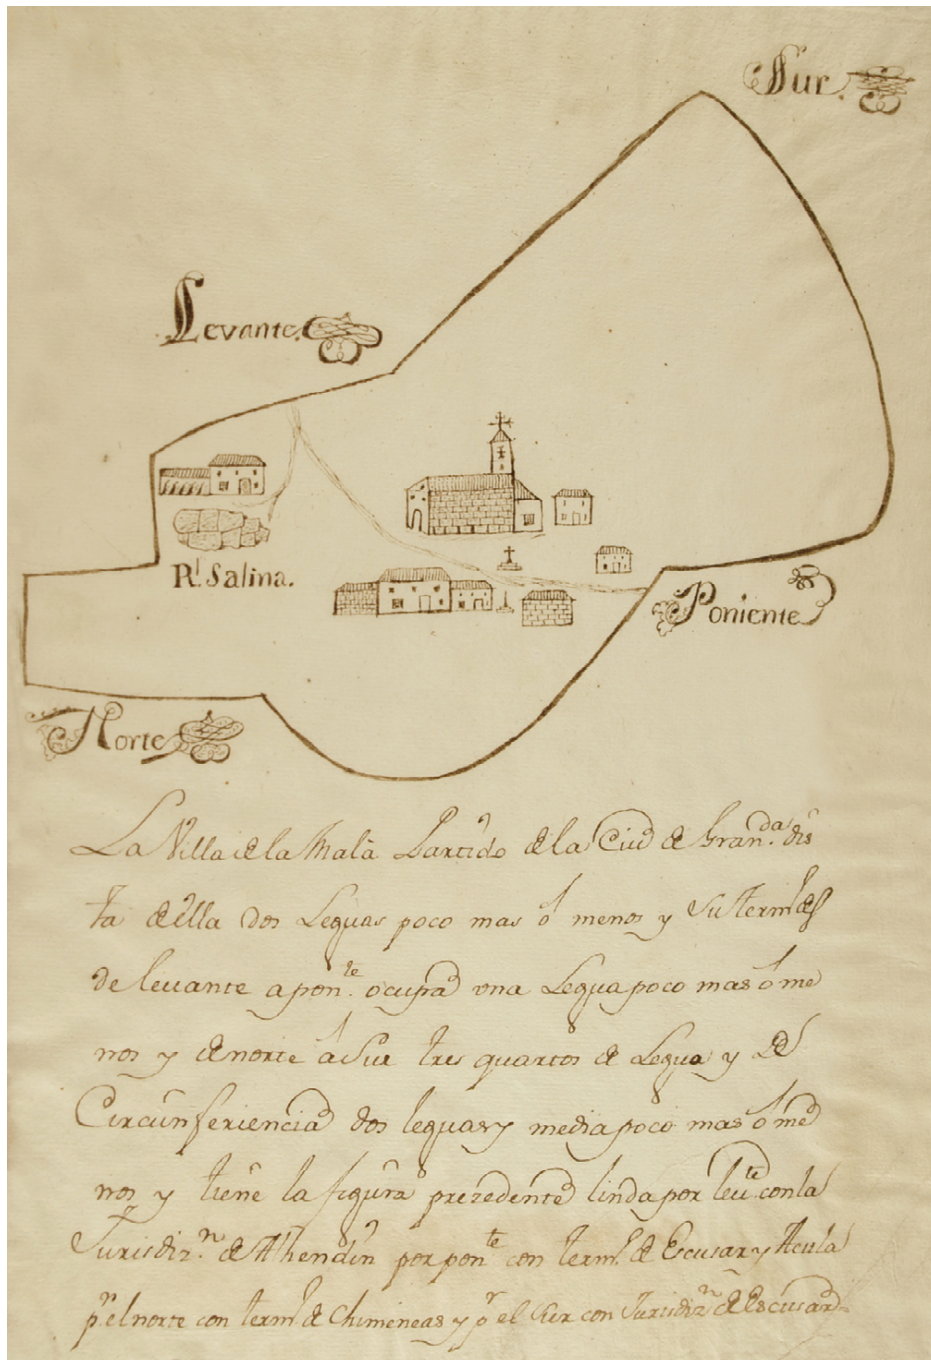 Sur.
Levante.
Rl. Salina.
Poniente
Norte
La Villa de la Mala Partido de la Ciud de Granda. dis
ta de ella dos Leguas poco mas ó menos y su term.
de levante a ponte. ocupa una Legua poco mas ó me
nos y de norte á Sur tres quartos de Legua y de
Circunferiencia dos leguas y media poco mas ó me
nos y tiene la figura prezedente linda por levte. con la
Jurisdizn. de Alhendin por ponte con term. de Escusar y Acula
pr el norte con term. de Chimeneas y pr el Sur con Jurisdizn de Escusar